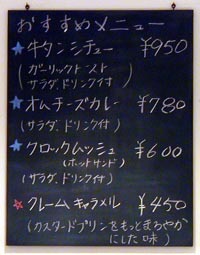 おすすめメニュー
★牛タンシチュー ¥950
(ガーリックトースト
サラダ、ドリンク付)
★オムチーズカレー ¥780
(サラダ、ドリンク付)
★クロックムッシュ ¥600
(ホットサンド)
(サラダ、ドリンク付)
☆クレームキャラメル ¥450
(カスタードプリンをもっとまろやか
にした味)